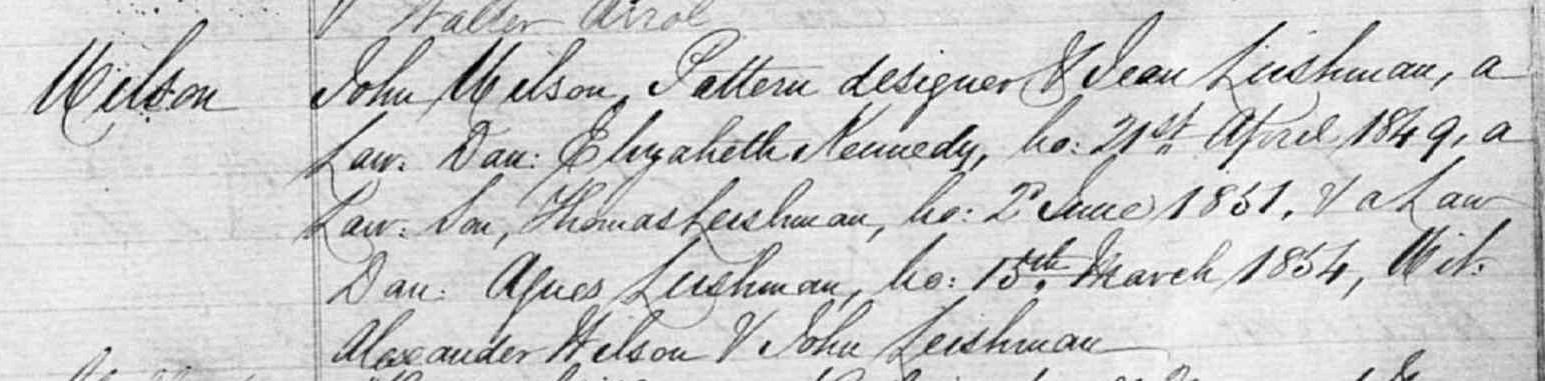 Walter Arrol
Wilson John Wilson, Pattern designer & Jean Leishman, a
Law: Dau: Elizabeth Kennedy, bo: 21st April 1849, a
Law: Son, Thomas Leishman, bo: 2d June 1851, & a Law
Dau: Agnes Leishman, bo: 15th March 1854, Wit:
Alexander Wilson & John Leishman